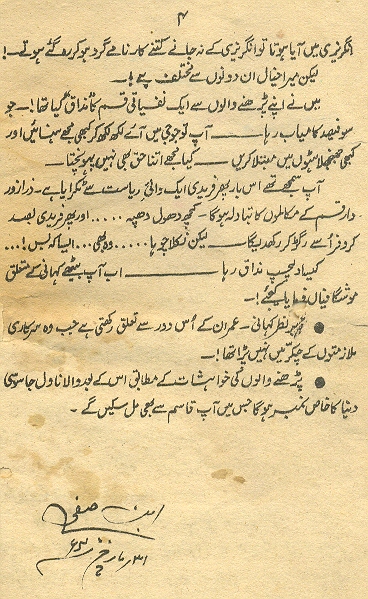 ۴
انگریزی میں آیا ہوتا تو انگریزی کے نہ جانے کتنے کارنامے گرد ہو کر رہ گئے ہوتے۔!
لیکن میرا خیال ان دونوں سے مختلف ہے!۔
میں نے اپنے پڑھنے والوں سے ایک نفسیاتی قسم کا مذاق کیا تھا!۔ جو
سو فیصد کامیاب رہا ــــ آپ تو جو جی میں آئے لکھ لکھ کر کبھی مجھے ہنسائیں اور
کبھی جھنجھلاہٹوں میں مبتلا کریں ــــ کیا مجھے اتنا حق بھی نہیں پہونچتا۔
آپ سمجھے تھے اس بار پھر فریدی ایک والئ ریاست سے ٹکرایا ہے۔ ذرا زور
دار قسم کے مکالموں کا تبادلہ ہو گا۔ کچھ دھول دھپہ ..... اور پھر فریدی بصد
کروفر اُسے رگڑ کر رکھ دیگا ــــ لیکن نکلا چوہا ..... وہ بھی ... ایسا کہ بس! ...
کیسا دلچسپ مذاق رہا ــــ اب آپ بیٹھے کہانی سے متعلق
موشگافیاں فرمایا کیجئے!۔
● زیر نظر کہانی۔ عمران کے اُس دور سے تعلق رکھتی ہے جب وہ سرکاری
ملازمتوں کے چکر میں نہیں پڑا تھا!۔
● پڑھنے والوں کی خواہشات کے مطابق اس کے بعد والا ناول جاسوسی
دنیا کا خاص نمبر ہو گا جس میں آپ قاسم سے بھی مل سکیں گے۔
ابن صفی
مارچ